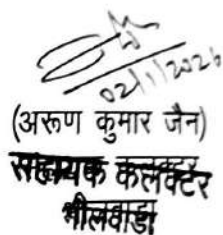 02/1/2026
(अरूण कुमार जैन)
सहायक कलक्टर
भीलवाड़ा